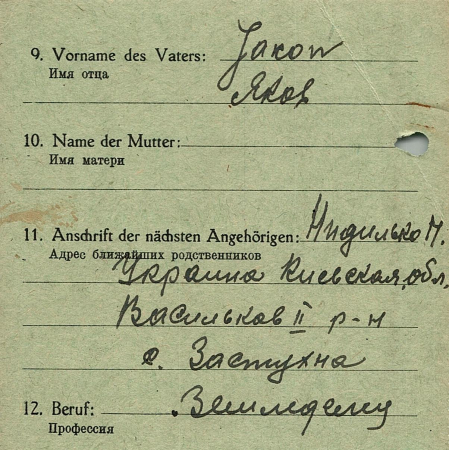 9. Vorname des Vaters: Jakow
Имя отца
Яков
10. Name der Mutter:
Имя матери
11. Anschrift der nächsten Angehörigen: Нидилько М.
Адрес ближайших родственников
Украина Киевская обл.
Васильков II р-н
с. Застухна
12. Beruf: Земледелец
Профессия